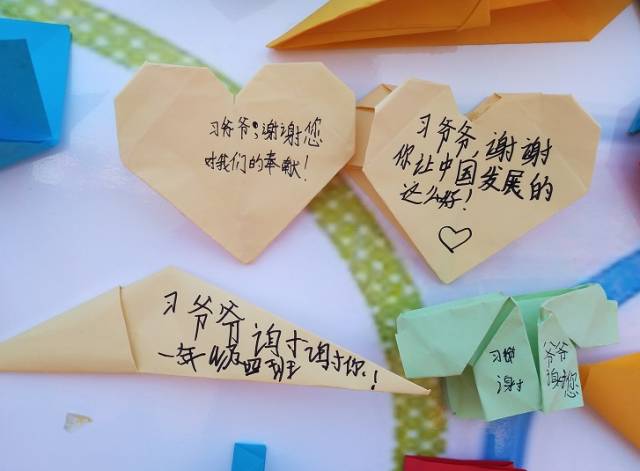 习爷爷：谢谢您
对我们的奉献！
习爷爷，谢谢
你让中国发展的
这么好！
习爷爷谢谢你！
一年级四班
习爷爷
谢谢您